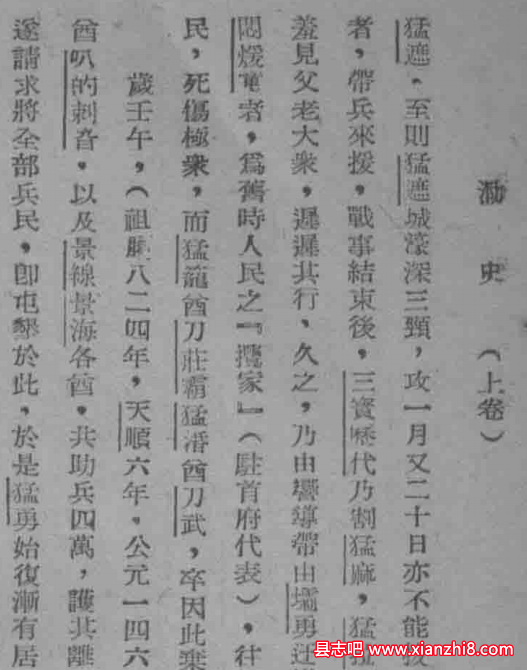 泐史（上卷）
猛遮，至則猛遮城濠深三頸，攻一月又二十日亦不能
者，帶兵來援，戰事結束後，三寶歷代乃割猛麻，猛
羞見父老大衆，遲遲其行、久之，乃由嚮導帶由壩勇
悶煖
者，爲舊時人民之『攬家』（駐首府代表），往
民，死傷極衆，而猛籠酋刀莊霸猛潘酋刀武，卒因此棄
歲壬午，（祖臘八二四年，天順六年。公元一四六
酋叭的刺音，以及景線景海各酋，共助兵四萬，護其離
遂請求將全部兵民，卽屯墾於此，於是猛勇始復漸有居
县志吧 www.xianzhi8.com